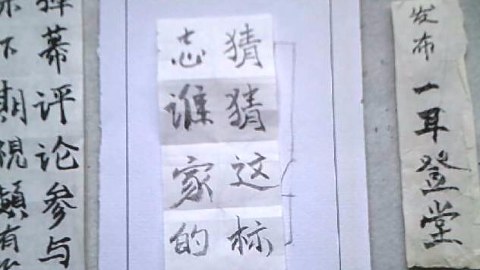 发布一耳登堂
猜猜这标
志谁家的
弹幕评论参与
下期視頻有